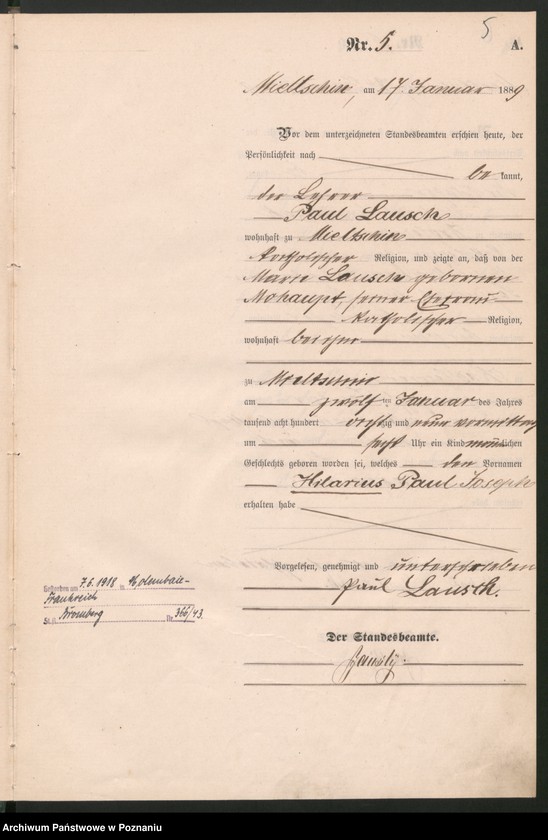 5
Nr. 5. A.
Mieltschin, am 17. Januar 1889
Vor dem unterzeichneten Standesbeamten erschien heute, der
Persönlichkeit nach
be kannt,
der Lehrer
Paul Lausch
wohnhaft zu Mieltschin
katholischer Religion, und zeigte an, daß von der
Marie Lausch gebornen
Mohaupt, seiner Ehefrau
katholischer Religion,
wohnhaft bei ihm
zu Mieltschin
am zwölf ten Januar des Jahres
tausend acht hundert achtzig und neun vormittag
um Uhr ein Kind männlichen
Geschlechts geboren worden sei, welches den Vornamen
Hilarius Paul Joseph
erhalten habe
Vorgelesen, genehmigt und unterschrieben
Paul Lausch.
Der Standesbeamte.
Gestorben am 7.6.1918 in
Frankreich
St. A. Bromberg Nr. 366/43.
Archiwum Państwowe w Poznaniu